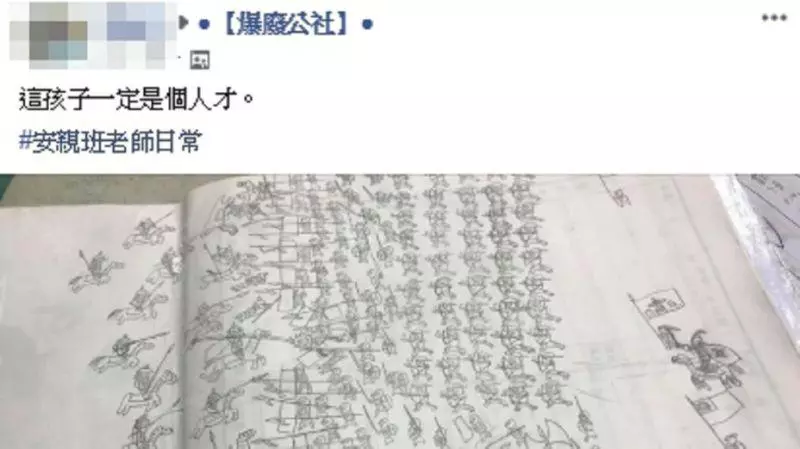 【爆廢公社】
這孩子一定是個人才。
#安親班老師日常